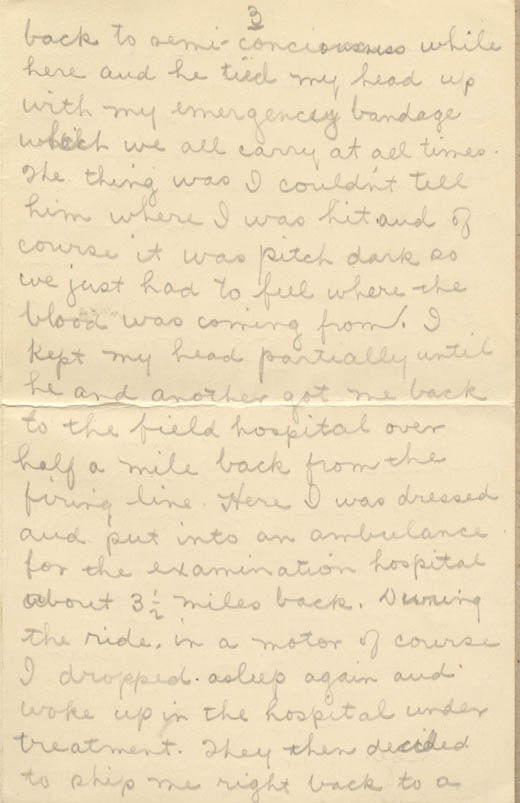 3
back to semi-conciousness while
here and he tied my head up
with my emergency bandage
which we all carry at all times.
The thing was I couldn't tell
him where I was hit and of
course it was pitch dark so
we just had to feel where the
blood was coming from. I
kept my head partially until
he and another got me back
to the field hospital over
half a mile back from the
firing line. Here I was dressed
and put into an ambulance
for the examination hospital
about 3 1/2 miles back. During
the ride, in a motor of course
I dropped asleep again and
woke up in the hospital under
treatment. They then decided
to ship me right back to a